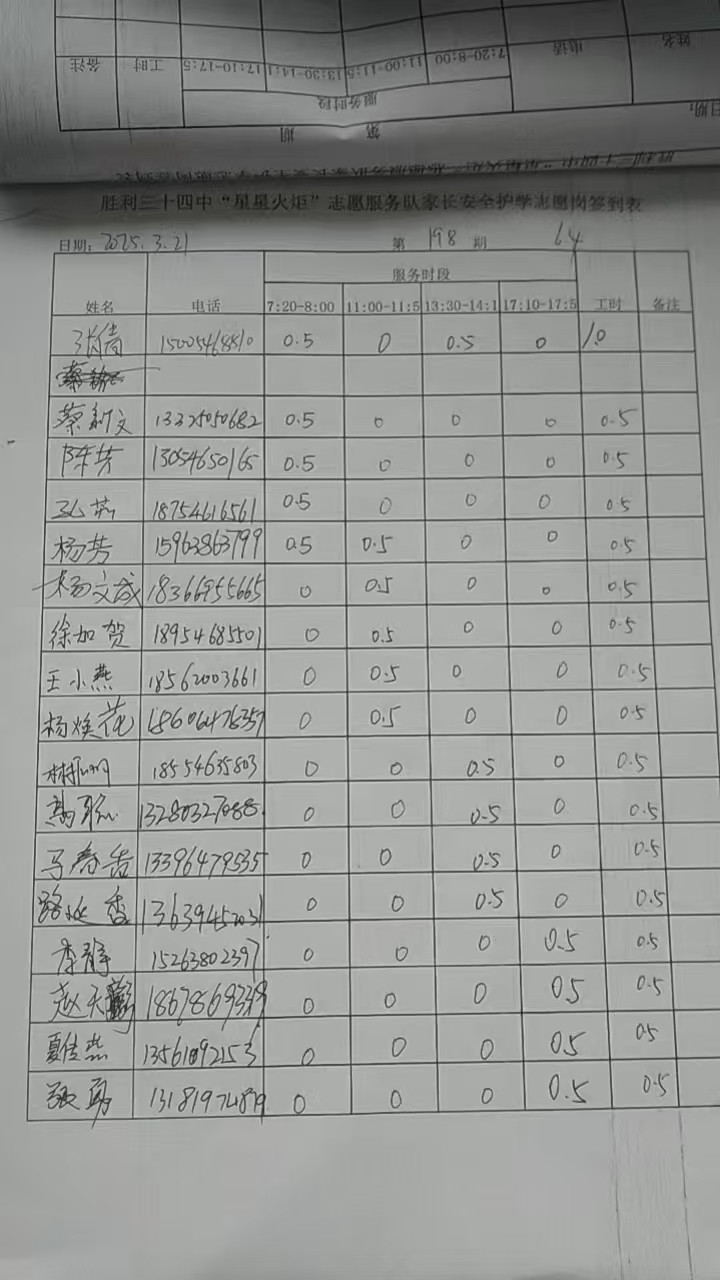 备注 工时 17:10-17:5 13:30-14:1 11:00-11:5 7:20-8:00 电话 姓名
服务时段
第 期 日期:
胜利三十四中“星星火炬”志愿服务队家长安全护学志愿岗签到表
日期: 2025.3.21 第 198 期 64
姓名 电话 服务时段 工时 备注
7:20-8:00 11:00-11:5 13:30-14:1 17:10-17:5
张倩 15005468510 0.5 0 0.5 0 1.0
蔡新文 13325050682 0.5 0 0 0 0.5
陈芳 13054650165 0.5 0 0 0 0.5
18754616561 0.5 0 0 0 0.5
杨芳 15963863799 0.5 0.5 0 0 0.5
杨文成 18366955665 0 0.5 0 0 0.5
徐加贺 18954685501 0 0.5 0 0 0.5
王小燕 18562003661 0 0.5 0 0 0.5
杨焕花 18606476357 0 0.5 0 0 0.5
18554635803 0 0 0.5 0 0.5
13280327088 0 0 0.5 0 0.5
马春香 13396479535 0 0 0.5 0 0.5
路延香 0 0 0.5 0 0.5
李静 15263802397 0 0 0 0.5 0.5
赵天 0 0 0 0.5 0.5
夏佳燕 13561092153 0 0 0 0.5 0.5
张勇 0 0 0 0.5 0.5